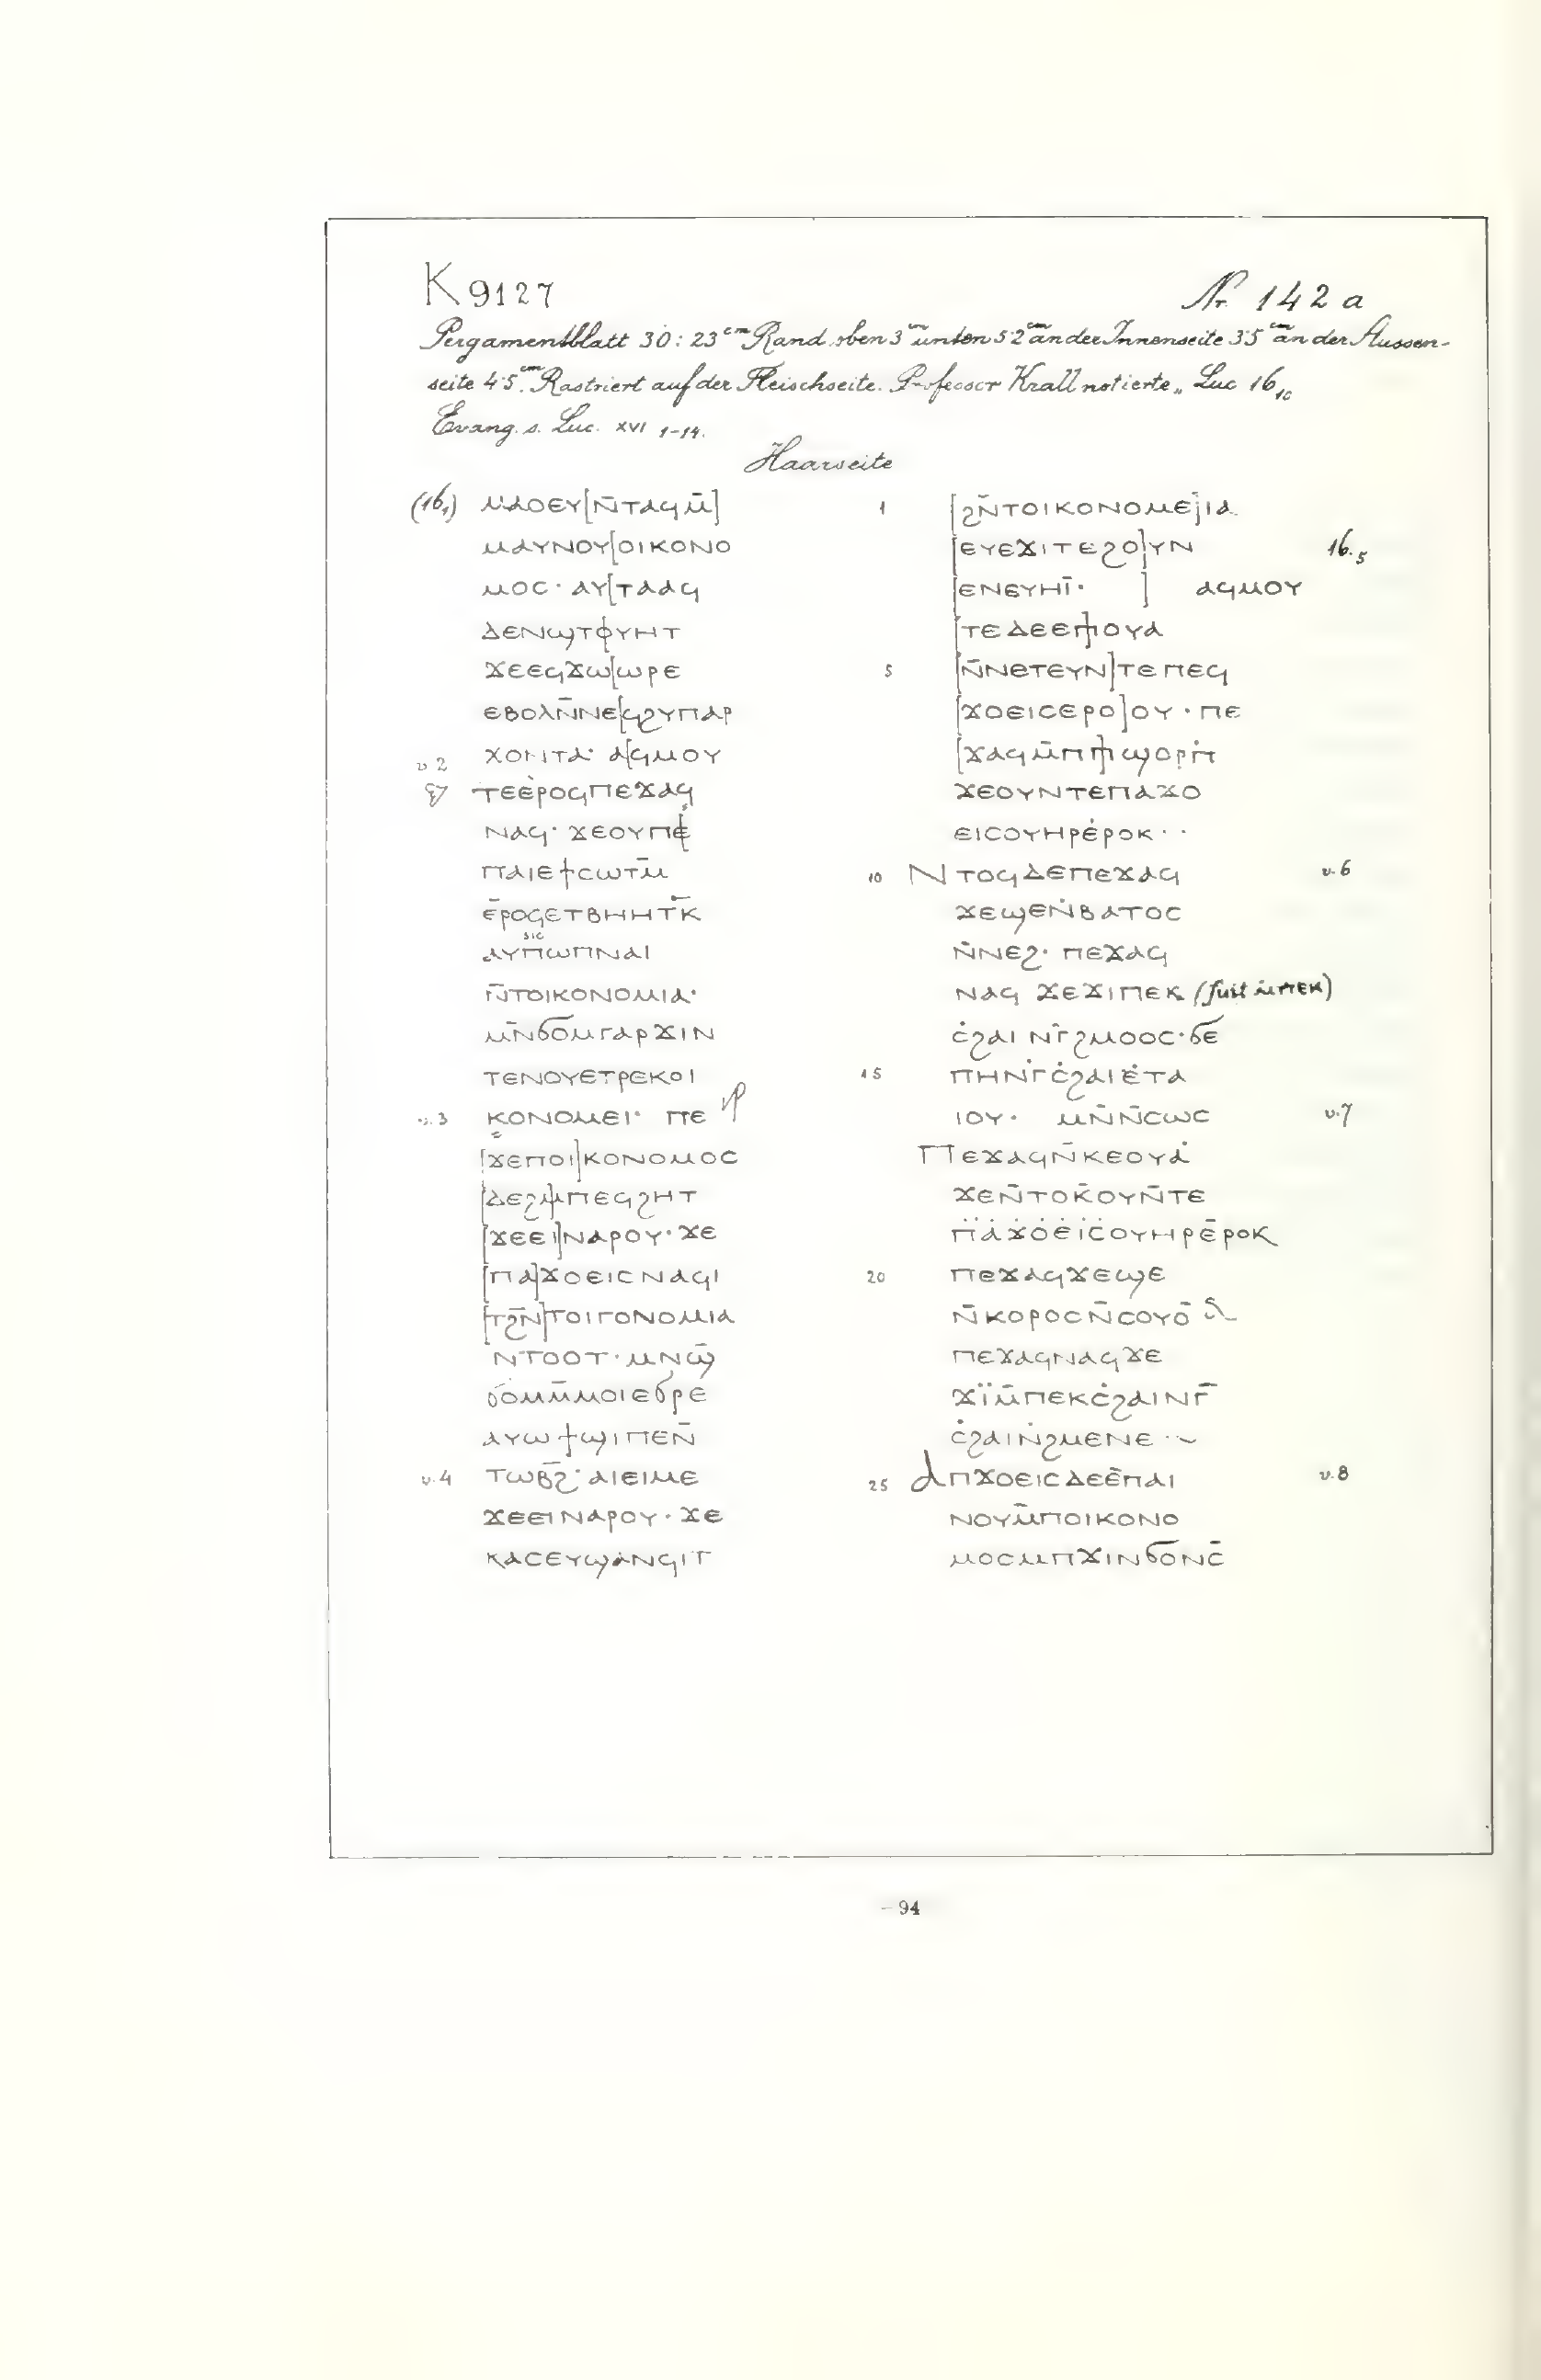 K 9127
Nr. 142 a
Pergamentblatt 30 : 23 cm Rand oben 3 cm unten 5·2 cm an der Innenseite 3·5 cm an der Aussen-
seite 4·5 cm. Rastriert auf der Fleischseite. Professor Krall notierte „ Luc 16,10
Evang. s. Luc. XVI 1-14.
Haarseite
(16,1) ⲙⲁⲟⲉⲩ[ⲛ̄ⲧⲁϥⲙ̄]
ⲙⲁⲩⲛⲟⲩ[ⲟⲓⲕⲟⲛⲟ
ⲙⲟⲥ· ⲁⲩ[ⲧⲁⲁϥ
ⲇⲉⲛϣⲧϥⲩⲏⲧ
ϫⲉⲉϥϫⲱ[ⲱⲣⲉ
ⲉⲃⲟⲗⲛ̄ⲛⲉ[ϥϩⲩⲡⲁⲣ
v. 2 ⲭⲟⲛⲧⲁ· ⲁ[ϥⲙⲟⲩ
ⲧⲉⲉ̇ⲣⲟϥⲡⲉϫⲁϥ
ⲛⲁϥ· ϫⲉⲟⲩⲡⲉ
ⲡⲁⲓⲉϯⲥⲱⲧⲙ̄
ⲉ̄ⲣⲟϥⲉⲧⲃⲏⲏⲧⲕ̄
sic
ⲁⲩⲡⲱⲡⲛⲁⲓ
ⲛ̄ⲧⲟⲓⲕⲟⲛⲟⲙⲓⲁ·
ⲙⲛ̄ϭⲟⲙⲅⲁⲣϫⲓⲛ
ⲧⲉⲛⲟⲩⲉⲧⲣⲉⲕⲟⲓ
v. 3 ⲕⲟⲛⲟⲙⲉⲓ· ⲡⲉ
[ϫⲉⲡⲟⲓ]ⲕⲟⲛⲟⲙⲟⲥ
[ⲇⲉϩⲙ̄ⲡⲉϥϩⲏⲧ
[ϫⲉⲉⲓ]ⲛⲁⲣⲟⲩ·ϫⲉ
[ⲡⲁ]ϫⲟⲉⲓⲥⲛⲁϥⲓ
[ⲧϩⲛ̄]ⲧⲟⲓⲅⲟⲛⲟⲙⲓⲁ
ⲛⲧⲟⲟⲧ·ⲙⲛϣ̄
ϭⲟⲙⲙ̄ⲙⲟⲓⲉϭⲣⲉ
ⲁⲩⲱϯϣⲓⲡⲉⲛ̄
v. 4 ⲧⲱⲃϩ̄·ⲁⲓⲉⲓⲙⲉ
ϫⲉⲉⲓⲛⲁⲣⲟⲩ·ϫⲉ
ⲕⲁⲥⲉⲩϣⲁⲛϥⲓⲧ
1 [ϩⲛ̄ⲧⲟⲓⲕⲟⲛⲟⲙⲉ]ⲓⲁ
[ⲉⲩⲉϫⲓⲧⲉϩⲟ]ⲩⲛ 16,5
[ⲉⲛⲉⲩⲏⲓ̄· ] ⲁϥⲙⲟⲩ
[ⲧⲉⲇⲉⲉⲡⲟⲩⲁ
5 [ⲛ̄ⲛⲉⲧⲉⲩⲛ]ⲧⲉⲡⲉϥ
[ϫⲟⲉⲓⲥⲉⲣⲟ]ⲟⲩ·ⲡⲉ
[ϫⲁϥⲙ̄ⲡϣⲟⲣⲡ
ϫⲉⲟⲩⲛⲧⲉⲡⲁϫⲟ
ⲉⲓⲥⲟⲩⲏⲣⲉ̇ⲣⲟⲕ··
10 ⲛⲧⲟϥⲇⲉⲡⲉϫⲁϥ v. 6
ϫⲉϣⲉⲛ̇ⲃⲁⲧⲟⲥ
ⲛ̇ⲛⲉϩ· ⲡⲉϫⲁϥ
ⲛⲁϥ ϫⲉϫⲓⲡⲉⲕ (fuit ⲙ̄ⲡⲉⲕ)
ⲥ̇ϩⲁⲓ ⲛⲅ̄ϩⲙⲟⲟⲥ·ϭⲉ
15 ⲡⲏⲛⲅ̇ⲥ̇ϩⲁⲓⲉ̇ⲧⲁ
ⲓⲟⲩ· ⲙⲛ̄ⲛ̄ⲥⲱⲥ v. 7
ⲡⲉϫⲁϥⲛ̄ⲕⲉⲟⲩⲁ̇
ϫⲉⲛ̄ⲧⲟⲕ̄ⲟⲩⲛ̄ⲧⲉ
ⲡ̈ⲁ̇ϫ̇ⲟ̇ⲉ̇ⲓ̇ⲥ̇ⲟⲩⲏⲣⲉ̄ⲣⲟⲕ
20 ⲡⲉϫⲁϥϫⲉϣⲉ
ⲛ̄ⲕⲟⲣⲟⲥⲛ̄ⲥⲟⲩⲟ̄
ⲡⲉϫⲁϥⲛⲁϥϫⲉ
ϫⲓ̈ⲙ̄ⲡⲉⲕⲥ̇ϩⲁⲓⲛⲅ̄
ⲥ̇ϩⲁⲓⲛ̇ϩⲙⲉⲛⲉ·~
25 ⲁⲡϫⲟⲉⲓⲥⲇⲉⲉ̄ⲡⲁⲓ v. 8
ⲛⲟⲩⲙ̄ⲡⲟⲓⲕⲟⲛⲟ
ⲙⲟⲥⲙⲡϫⲓⲛϭⲟⲛⲥ̄
- 94